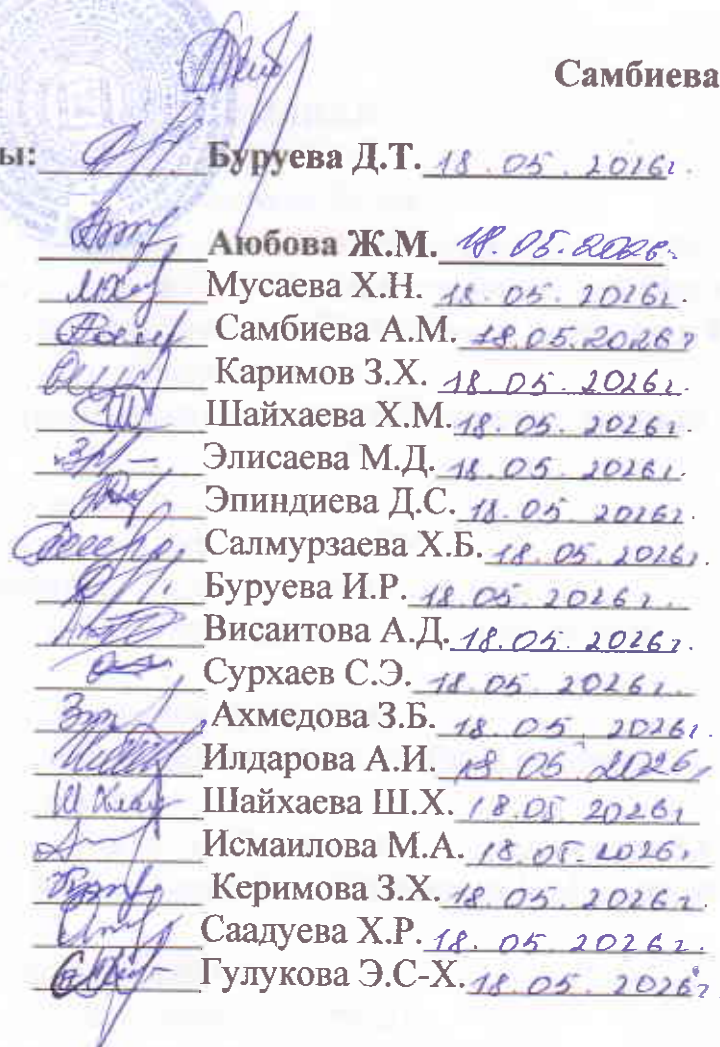 Самбиева
ы: Буруева Д.Т. 18.05.2026г.
Аюбова Ж.М. 18.05.2026г.
Мусаева Х.Н. 18.05.2026г.
Самбиева А.М. 18.05.2026г
Каримов З.Х. 18.05.2026г.
Шайхаева Х.М. 18.05.2026г.
Элисаева М.Д. 18.05.2026г.
Эпиндиева Д.С. 18.05.2026г.
Салмурзаева Х.Б. 18.05.2026г.
Буруева И.Р. 18.05.2026г.
Висаитова А.Д. 18.05.2026г.
Сурхаев С.Э. 18.05.2026г.
Ахмедова З.Б. 18.05.2026г.
Илдарова А.И. 18.05.2026г
Шайхаева Ш.Х. 18.05.2026г
Исмаилова М.А. 18.05.2026г
Керимова З.Х. 18.05.2026г.
Саадуева Х.Р. 18.05.2026г.
Гулукова Э.С-Х. 18.05.2026г